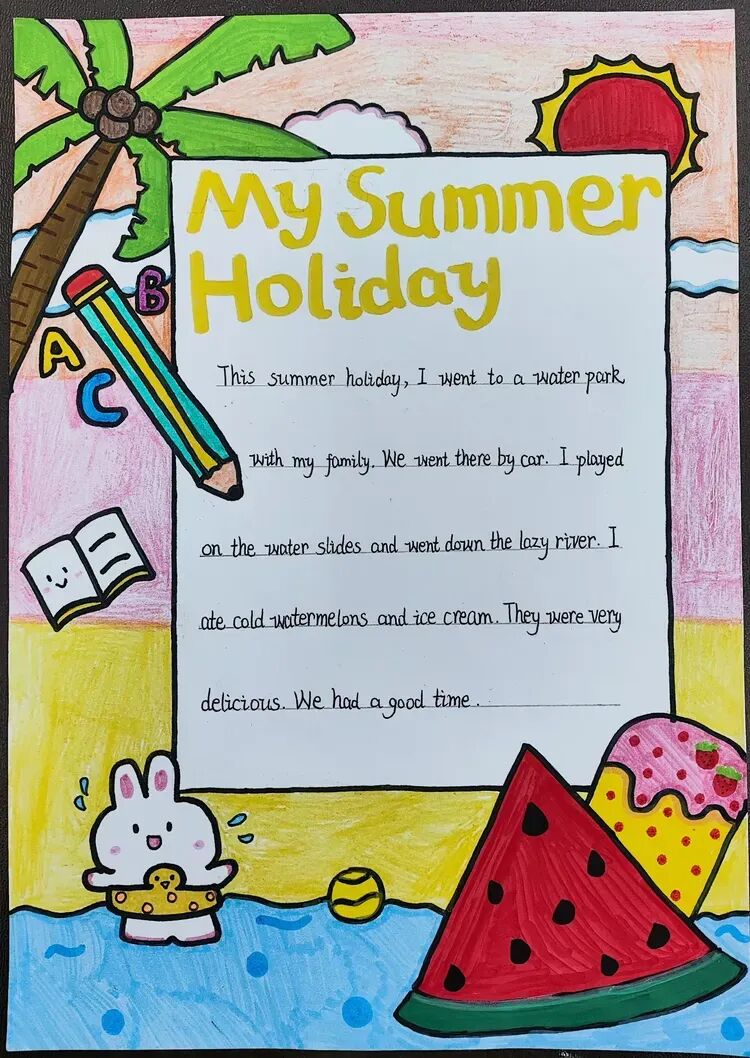 My Summer
Holiday
B
A
C
This summer holiday, I went to a water park
with my family. We went there by car. I played
on the water slides and went down the lazy river. I
ate cold watermelons and ice cream. They were very
delicious. We had a good time.